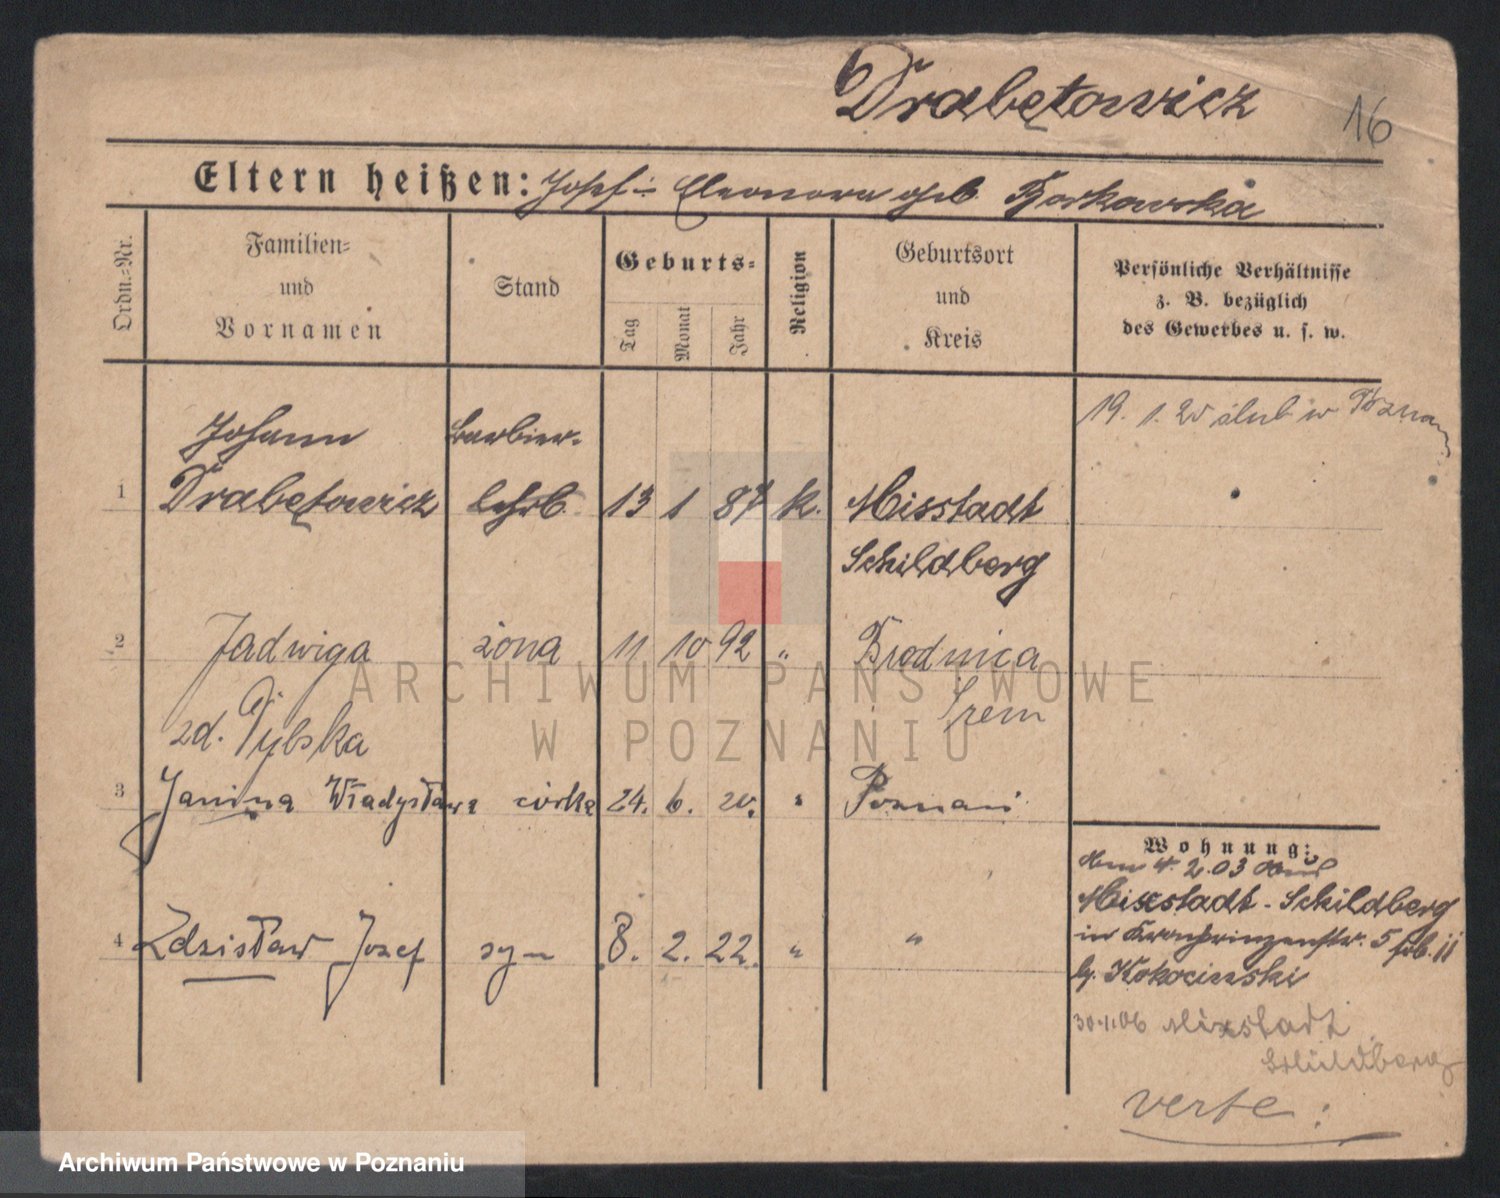 Drabętowicz
16
Eltern heißen: Josef u. Eleonora geb. Borkowska
Ordn.=Nr.
Familien= und Vornamen
Stand
Geburts=
Tag
Monat
Jahr
Religion
Geburtsort und Kreis
Persönliche Verhältnisse
z. B. bezüglich
des Gewerbes u. s. w.
19. 1. 20 ślub w Poznaniu
Johann Barbier-
1 Drabętowicz lehrl. 13 1 87 k. Mixstadt
Schildberg
2 Jadwiga żona 11 10 92 " Brodnica
zd. Dybska Śrem
3 Janina Władysława córka 24. 6. 20. " Poznań
4 Zdzisław Józef syn 8. 2. 22. " "
Wohnung:
4. 2. 03
Mixstadt - Schildberg
in Kronprinzenstr. 5
b. Kokocinski
30.1.06 Mixstadt
Schildberg
verte:
ARCHIWUM PAŃSTWOWE
W POZNANIU
Archiwum Państwowe w Poznaniu